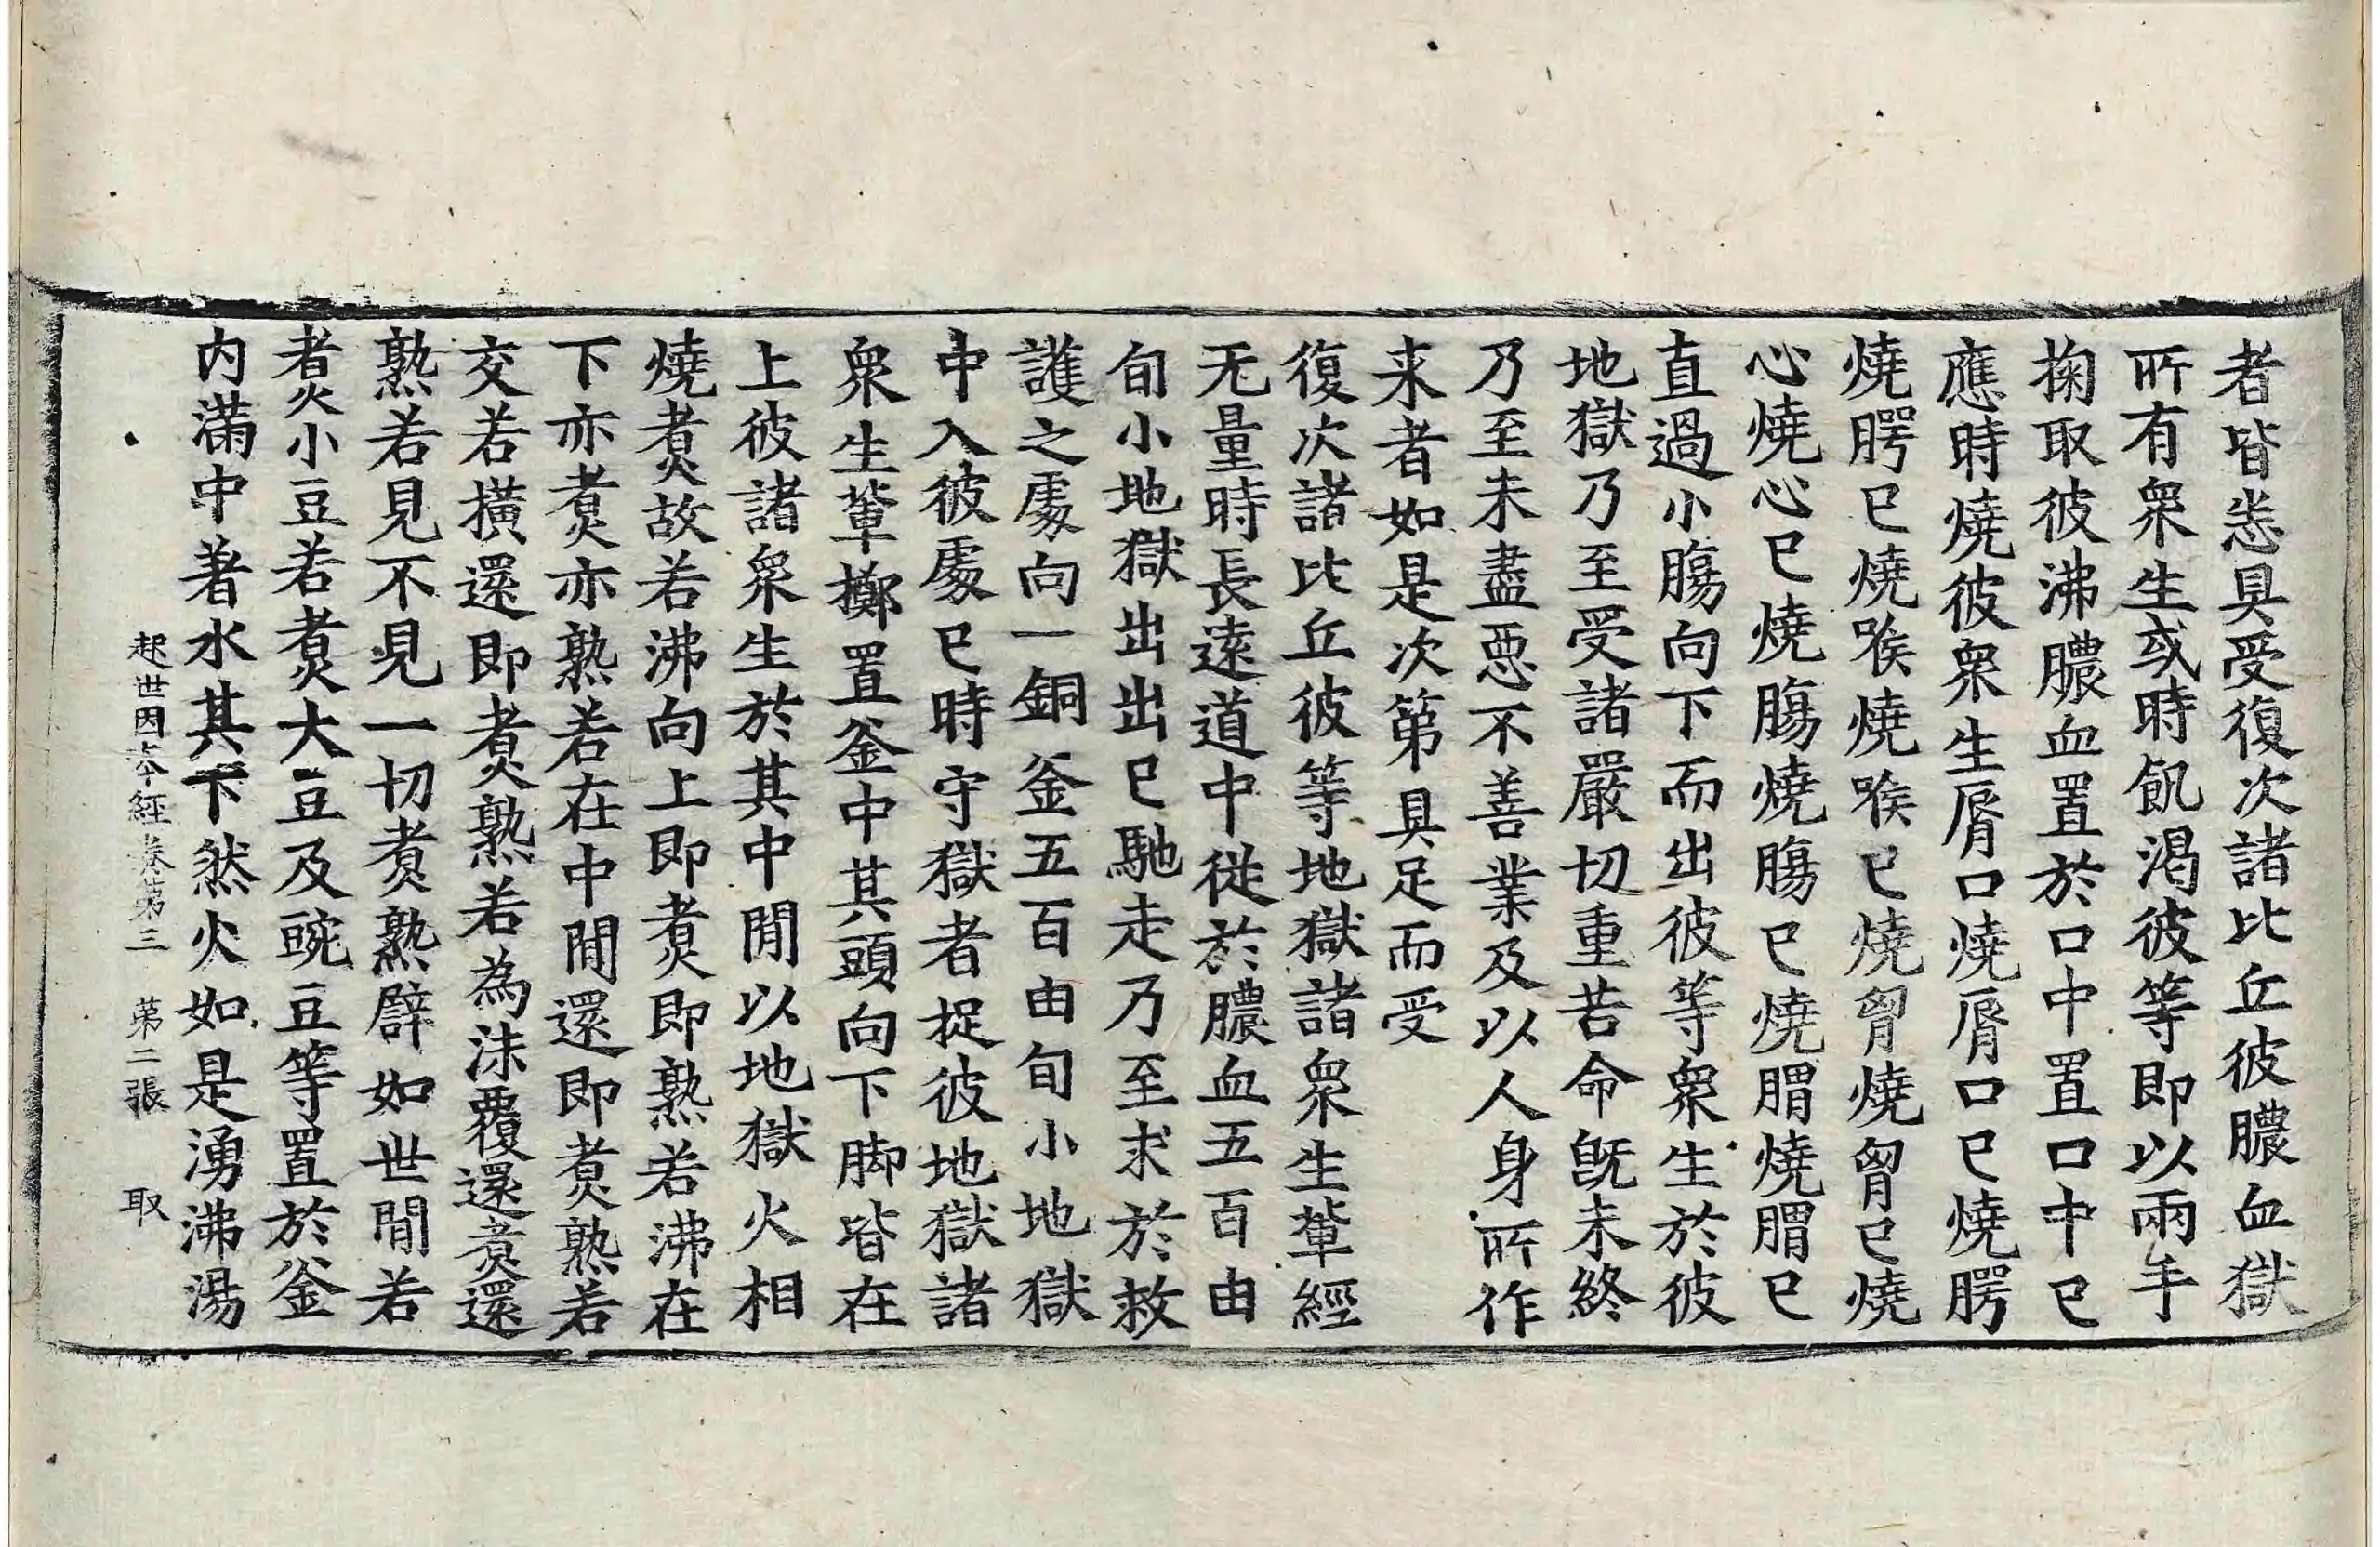 者皆悉具受復次諸比丘彼膿血獄
所有衆生或時飢渴彼等即以兩手
掬取彼沸膿血置於口中置口中已
應時燒彼衆生脣口燒脣口已燒腭
燒腭已燒喉燒喉已燒胷燒胷已燒
心燒心已燒膓燒膓已燒胃燒胃已
直過小膓向下而出彼等衆生於彼
地獄乃至受諸嚴切重苦命旣未終
乃至未盡惡不善業及以人身所作
来者如是次第具足而受
復次諸比丘彼等地獄諸衆生輩經
无量時長遠道中從於膿血五百由
旬小地獄出出已馳走乃至求於救
護之處向一銅釜五百由旬小地獄
中入彼處已時守獄者捉彼地獄諸
衆生輩擲置釜中其頭向下脚皆在
上彼諸衆生於其中間以地獄火相
燒煑故若沸向上即煑即熟若沸在
下亦煑亦熟若在中間還即煑熟若
交若橫還即煑熟若為沫覆還煑還
熟若見不見一切煑熟譬如世間若
煑小豆若煑大豆及豌豆等置於釜
内滿中著水其下然火如是湧沸湯
起世因夲經卷第三 第二張 取